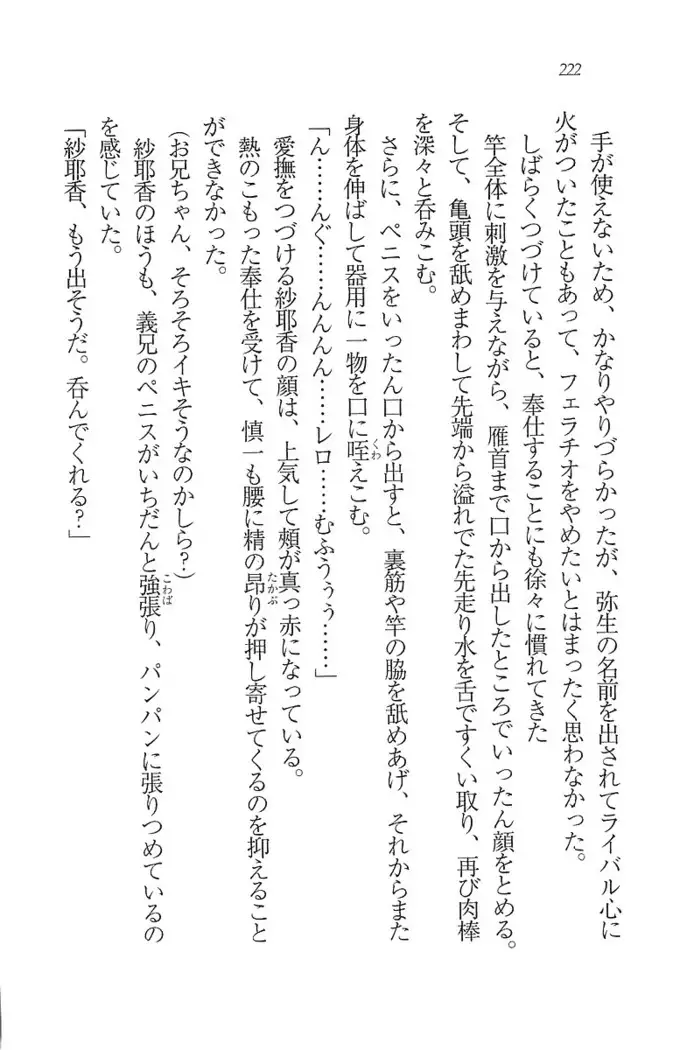 222
手が使えないため、かなりやりづらかったが、弥生の名前を出されてライバル心に
火がついたこともあって、フェラチオをやめたいとはまったく思わなかった。
しばらくつづけていると、奉仕することにも徐々に慣れてきた
竿全体に刺激を与えながら、雁首まで口から出したところでいったん顔をとめる。
そして、亀頭を舐めまわして先端から溢れでた先走り水を舌ですくい取り、再び肉棒
を深々と呑みこむ。
さらに、ペニスをいったん口から出すと、裏筋や竿の脇を舐めあげ、それからまた
身体を伸ばして器用に一物を口に咥えこむ。
「ん……んぐ……んんんん……レロ……むふうぅぅ……」
愛撫をつづける紗耶香の顔は、上気して頰が真っ赤になっている。
熱のこもった奉仕を受けて、慎一も腰に精の昂りが押し寄せてくるのを抑えること
ができなかった。
(お兄ちゃん、そろそろイキそうなのかしら？)
紗耶香のほうも、義兄のペニスがいちだんと強張り、パンパンに張りつめているの
を感じていた。
「紗耶香、もう出そうだ。呑んでくれる？」